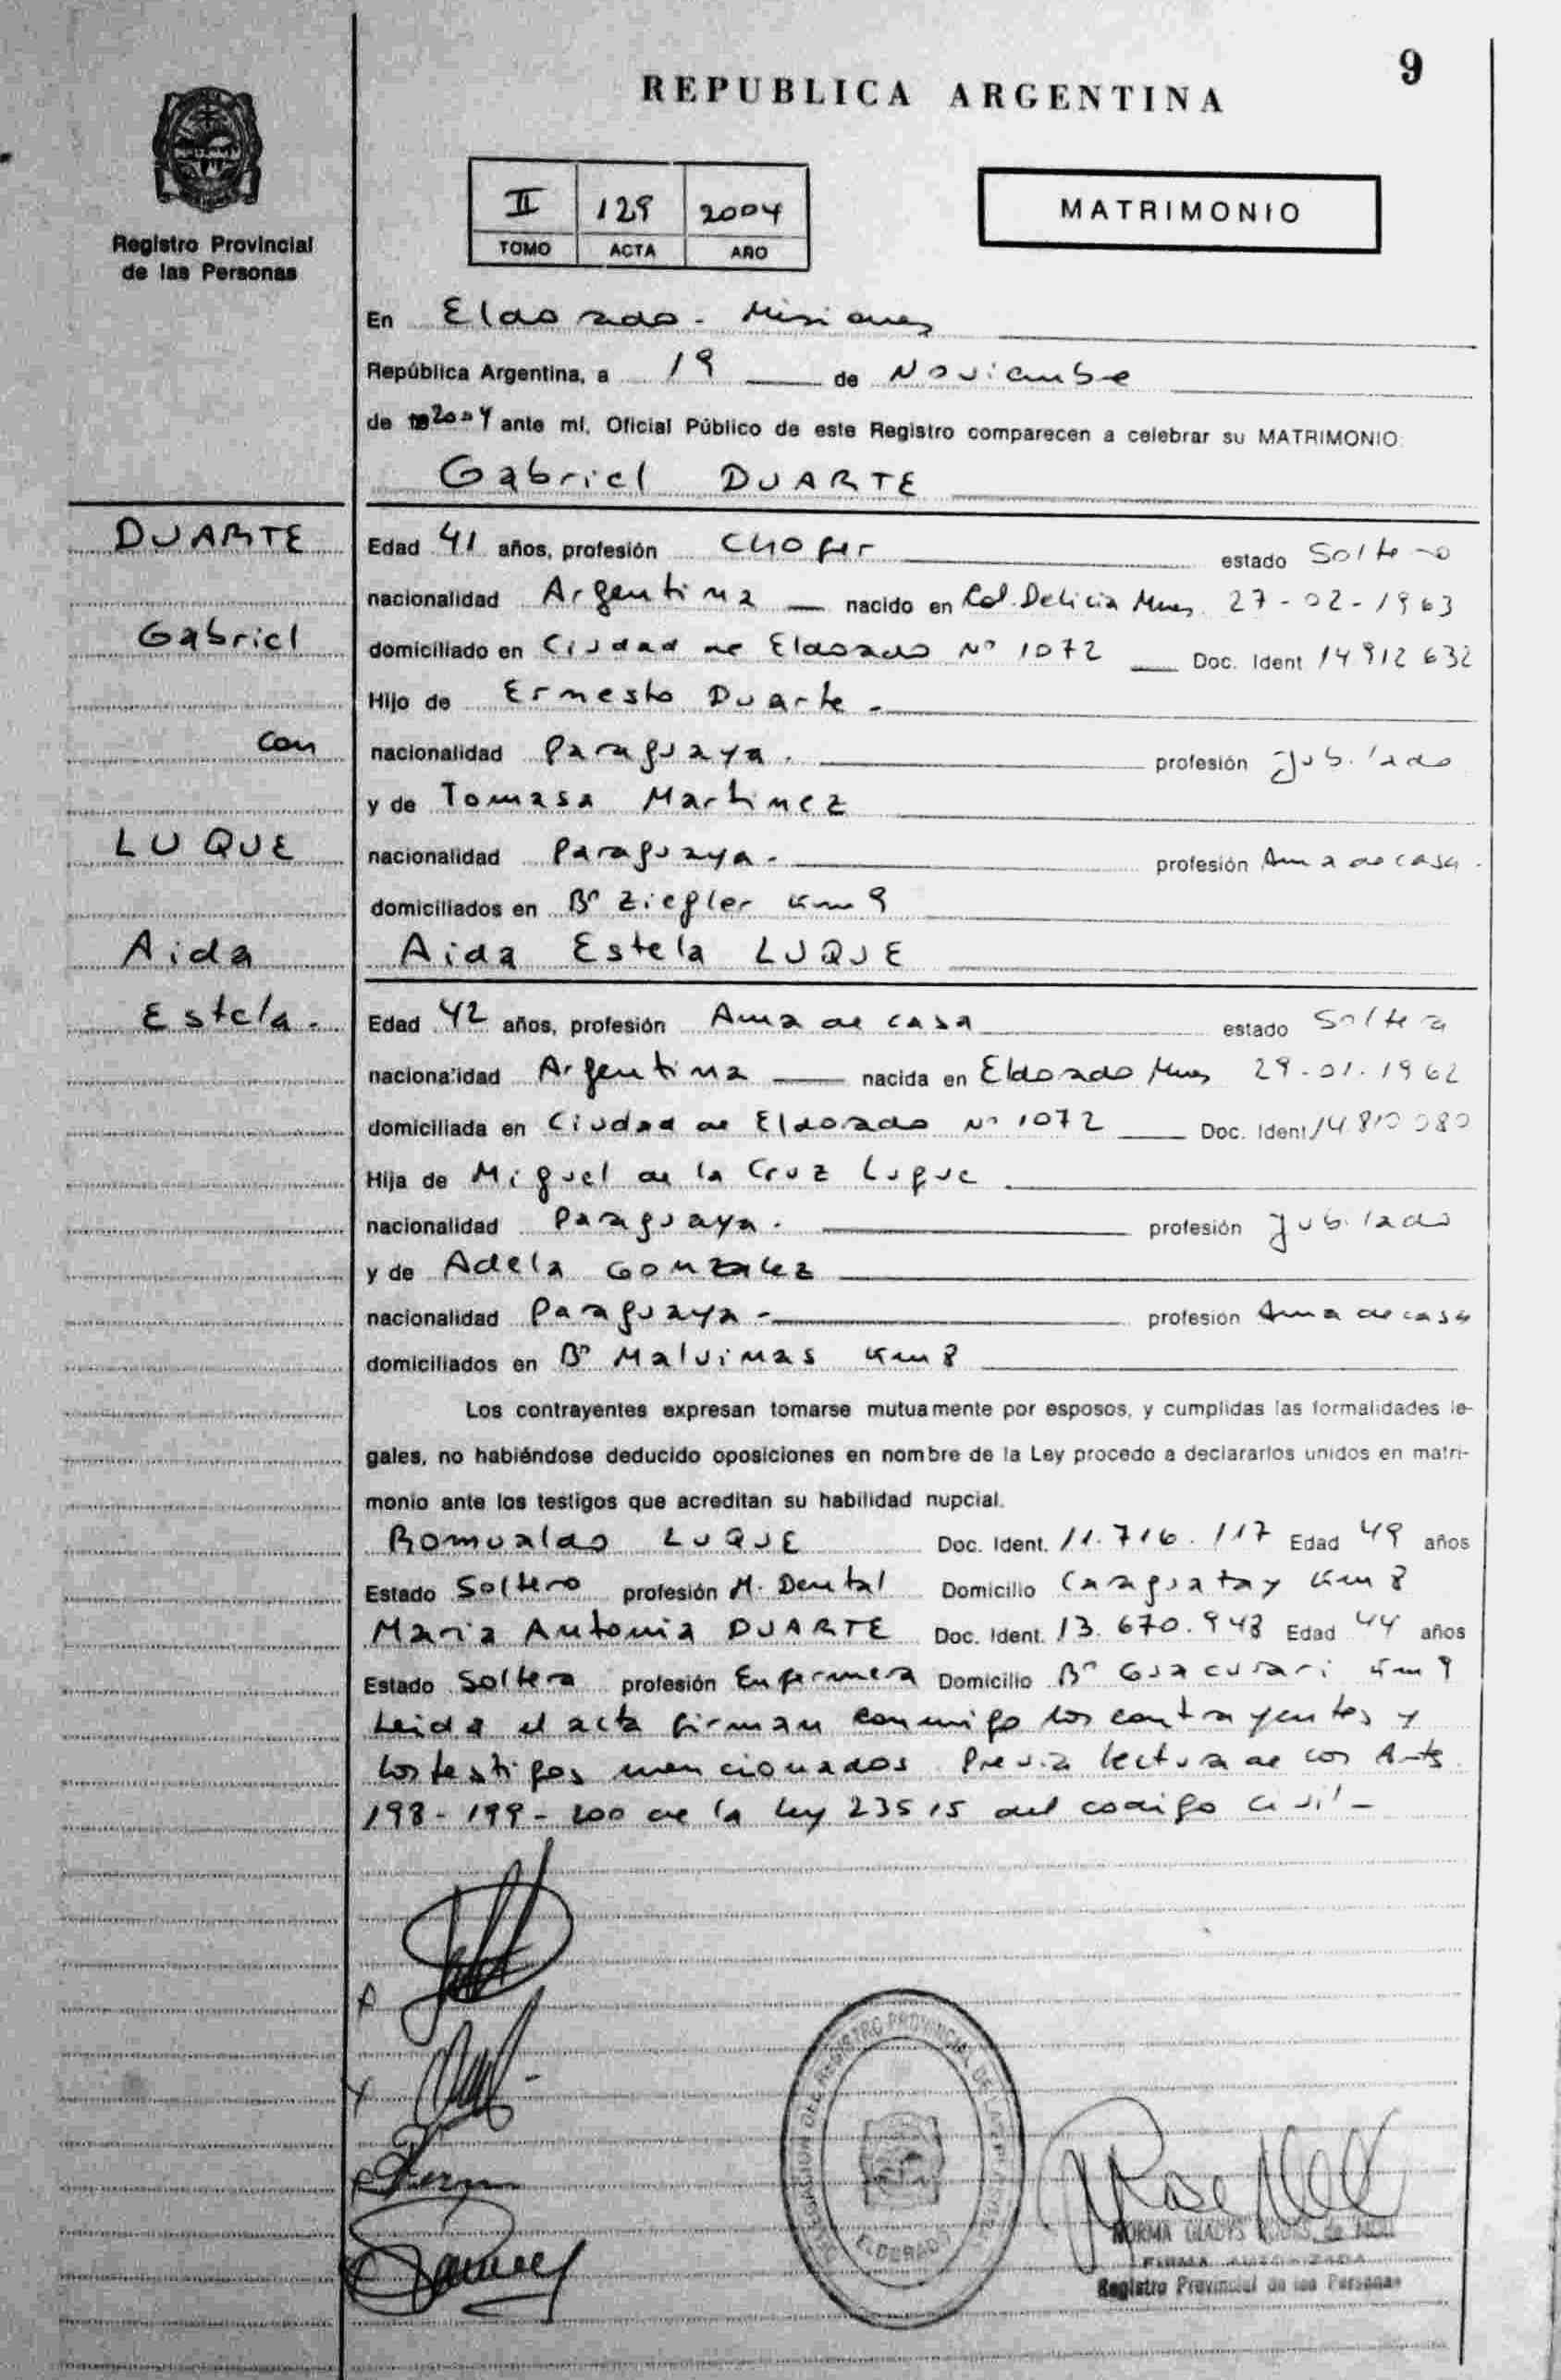 9
REPUBLICA ARGENTINA
II 129 2004
TOMO ACTA AÑO
MATRIMONIO
Registro Provincial
de las Personas
En Eldorado - Misiones
República Argentina, a 19 de Noviembre
de 2004 ante mí, Oficial Público de este Registro comparecen a celebrar su MATRIMONIO
Gabriel DUARTE
DUARTE
Gabriel
con
LUQUE
Aida
Estela.
Edad 41 años, profesión Chofer estado Soltero
nacionalidad Argentina nacido en Col. Delicia Mnes 27-02-1963
domiciliado en Ciudad de Eldorado Nº 1072 Doc. Ident 14912632
Hijo de Ernesto Duarte -
nacionalidad Paraguaya. profesión Jubilado
y de Tomasa Martinez
nacionalidad Paraguaya - profesión Ama de casa.
domiciliados en Bº Ziegler Km 9
Aida Estela LUQUE
Edad 42 años, profesión Ama de casa estado Soltera
nacionalidad Argentina nacida en Eldorado Mnes 29-01-1962
domiciliada en Ciudad de Eldorado Nº 1072 Doc. Ident 14.810080
Hija de Miguel de la Cruz Luque
nacionalidad Paraguaya. profesión Jubilado
y de Adela Gonzalez
nacionalidad Paraguaya - profesión Ama de casa
domiciliados en Bº Malvinas Km 8
Los contrayentes expresan tomarse mutuamente por esposos, y cumplidas las formalidades le-
gales, no habiéndose deducido oposiciones en nombre de la Ley procedo a declararlos unidos en matri-
monio ante los testigos que acreditan su habilidad nupcial.
Romualdo LUQUE Doc. Ident. 11.716.117 Edad 49 años
Estado Soltero profesión M. Dental Domicilio Caraguatay Km 8
Maria Antonia DUARTE Doc. Ident. 13.670.948 Edad 44 años
Estado Soltera profesión Enfermera Domicilio Bº Guacurari Km 9
Leida el acta firman conmigo los contrayentes y
los testigos mencionados. Previa lectura de los Arts
198-199-200 de la ley 23515 del codigo civil -
DELEGACION DEL REGISTRO PROVINCIAL DE LAS PERSONAS
ELDORADO
NORMA GLADYS de
FIRMA AUTORIZADA
Registro Provincial de las Personas